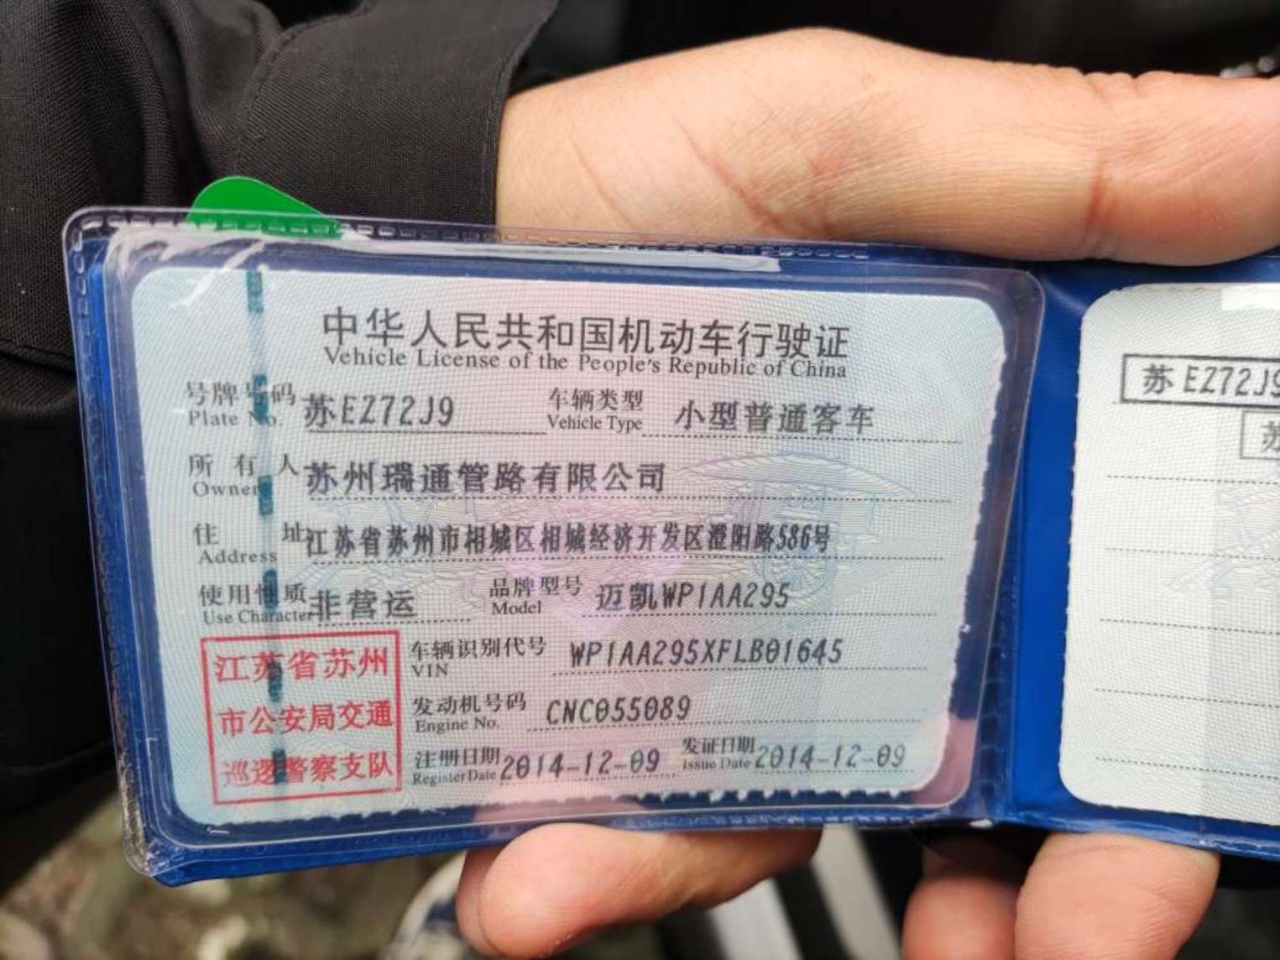 中华人民共和国机动车行驶证
Vehicle License of the People's Republic of China
号牌号码 苏EZ72J9 车辆类型 小型普通客车
Plate No. Vehicle Type
所有人 苏州瑞通管路有限公司
Owner
住址 江苏省苏州市相城区相城经济开发区澄阳路586号
Address
使用性质 非营运 品牌型号 迈凯WP1AA295
Use Character Model
江苏省苏州
市公安局交通
巡逻警察支队
车辆识别代号 WP1AA295XFLB01645
VIN
发动机号码 CNC055089
Engine No.
注册日期 2014-12-09 发证日期 2014-12-09
Register Date Issue Date
苏EZ72J9
苏